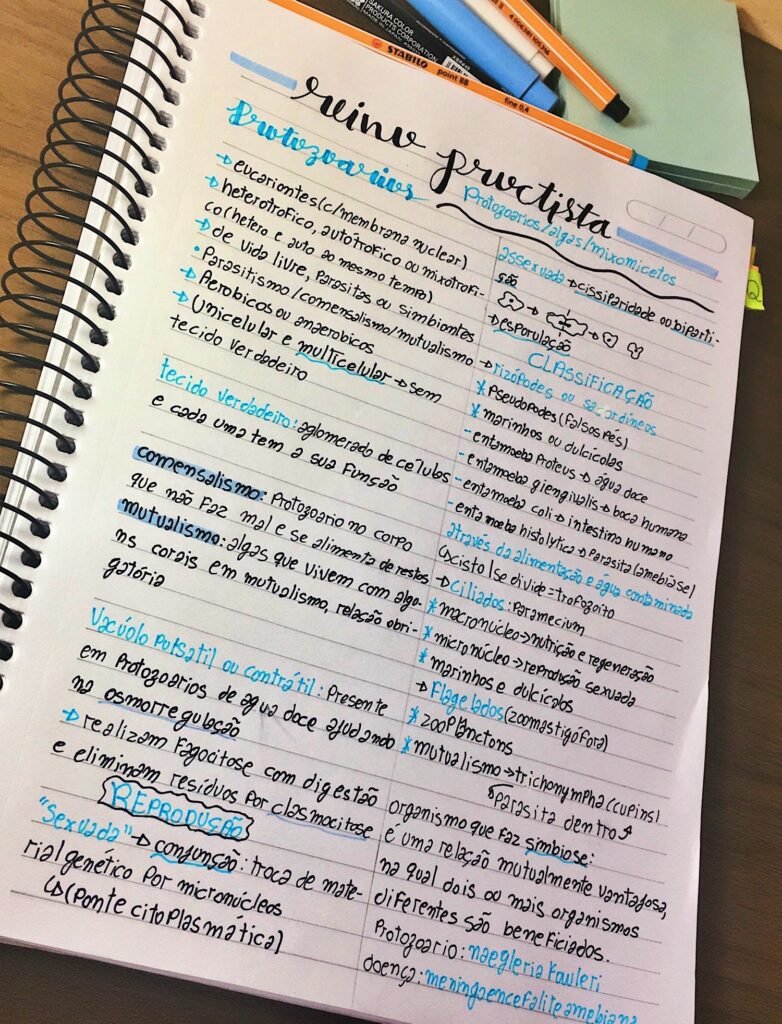 SAKURA COLOR
PRODUCTS CORPORATION
MADE IN JAPAN
STABILO point 88 fine 0,4
reino proctista
Protozoarios/algas/mixomicetos
protozoarios
→ eucariontes (c/membrana nuclear)
→ heterotrofico, autotrofico ou mixotrofi-
co (hetero e auto ao mesmo tempo)
→ de vida livre, parasitas ou simbiontes
• Parasitismo/comensalismo/mutualismo
→ Aerobicos ou anaerobicos
→ Unicelular e multicelular → sem
tecido verdadeiro
tecido verdadeiro: aglomerado de celulas
e cada uma tem a sua função
comensalismo: Protozoario no corpo
que não faz mal e se alimenta de restos
mutualismo: algas que vivem com algu-
ns corais em mutualismo, relação obri-
gatória
Vacúolo pulsatil ou contrátil: Presente
em Protozoarios de agua doce ajudando
na osmorregulação
→ realizam fagocitose com digestão
e eliminam resíduos por clasmocitose
REPRODUSÃO
"Sexuada" → conjunção: troca de mate-
rial genético Por micronúcleos
↳ (Ponte citoplasmática)
assexuada → cissiparidade ou biparti-
são
→ esporulação
CLASSIFICAÇÃO
→ rizópodes ou sacordineos
* Pseudopodes (falsos pés)
* marinhos ou dulcícolas
- entamoeba Proteus → água doce
- entamoeba giengivalis → boca humana
- entamoeba coli → intestino humano
- entamoeba histolytica → Parasita (amebiase)
através da alimentação e água contaminada
(↓cisto/se divide = trofozoito
→ Ciliados: Paramecium
* macronúcleo → nutrição e regeneração
* micronúcleo → reprodução sexuada
* marinhos e dulcícolas
→ Flagelados (zoomastigófora)
* zooplânctons
* mutualismo → trichonympha (cupins)
Parasita dentro
organismo que faz simbiose:
é uma relação mutualmente vantajosa,
na qual dois ou mais organismos
diferentes são beneficiados.
Protozoario: naegleria fowleri
doença: meningoencefalite amebiana